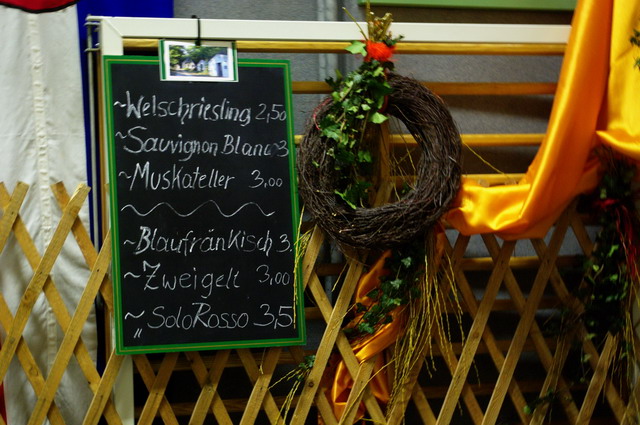 ~Welschriesling 2,50
~Sauvignon Blanc 3
~Muskateller 3,00
~Blaufränkisch 3.
~Zweigelt 3,00
~"SoloRosso 3,5